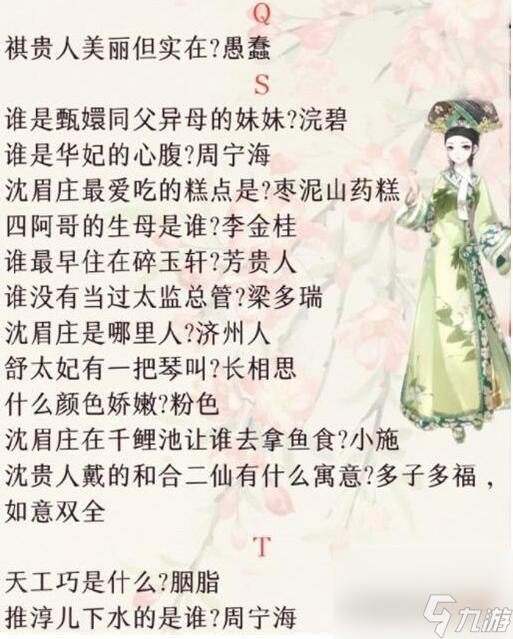 Q
祺贵人美丽但实在?愚蠢
S
谁是甄嬛同父异母的妹妹?浣碧
谁是华妃的心腹?周宁海
沈眉庄最爱吃的糕点是?枣泥山药糕
四阿哥的生母是谁?李金桂
谁最早住在碎玉轩?芳贵人
谁没有当过太监总管?梁多瑞
沈眉庄是哪里人?济州人
舒太妃有一把琴叫?长相思
什么颜色娇嫩?粉色
沈眉庄在千鲤池让谁去拿鱼食?小施
沈贵人戴的和合二仙有什么寓意?多子多福，
如意双全
T
天工巧是什么?胭脂
推淳儿下水的是谁?周宁海
九游